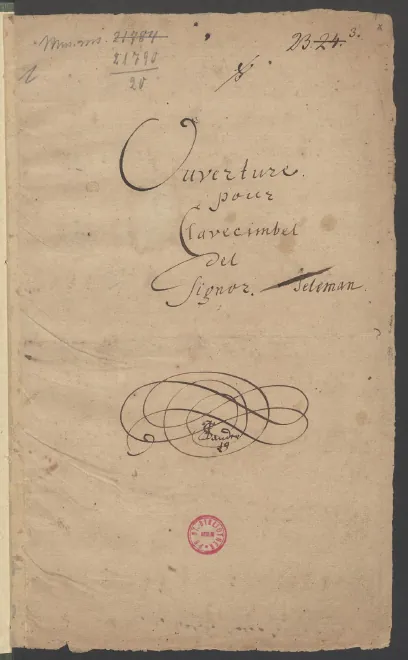 Mus. ms. 21784
21790
20
1
23. 24. 3.
Ouverture.
pour
Clavecimbel
del
Signor. Teleman.